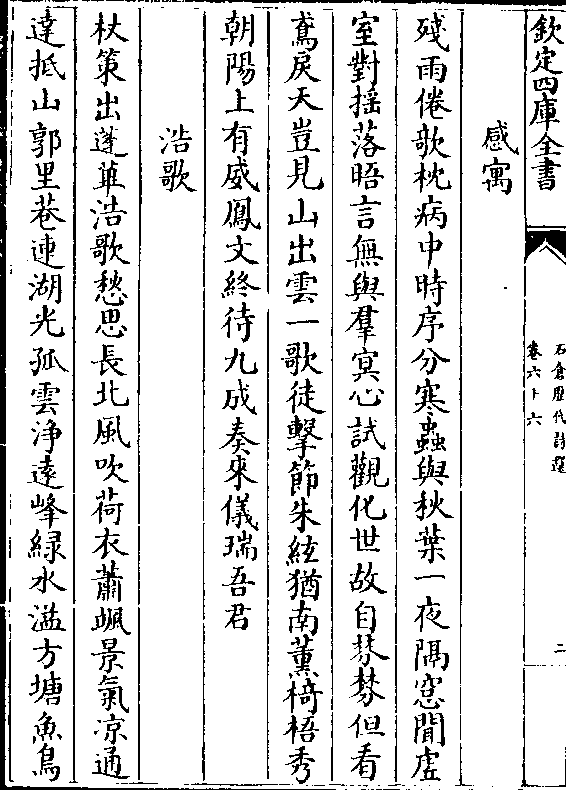 欽定四庫全書
石倉歷代詩選
卷六十六
二
感寓
殘雨倦歌枕病中時序分寒蟲與秋葉一夜隔窓聞虛
室對揺落晤言無與羣冥心試觀化世故自棼棼但看
鳶戾天豈見山出雲一歌徒擊節朱絃猶南薫椅梧秀
朝陽上有威鳳文終待九成奏來儀瑞吾君
浩歌
杖策出蓬蓽浩歌愁思長北風吹荷衣蕭颯景氣凉通
逵抵山郭里巷連湖光孤雲浄遠峰緑水溢方塘魚鳥